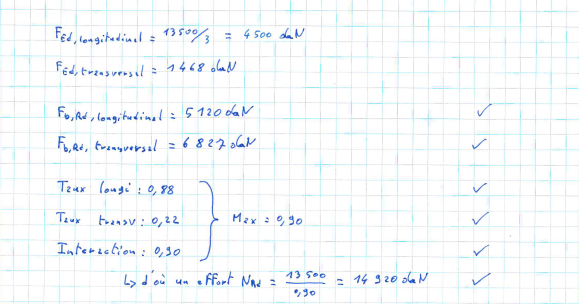 FEd, longitudinal = 13500/3 = 4500 daN
FEd, transversal = 1468 daN
Fb,Rd, longitudinal = 5120 daN ✓
Fb,Rd, transversal = 6827 daN ✓
Taux longi : 0,88 ✓
Taux transv : 0,22 } Max = 0,90 ✓
Interaction : 0,90 ✓
↳ d'où un effort NRd = 13500/0,90 = 14920 daN ✓